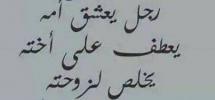 رجل يعشق أمه
يعطف على أخته
يخلص لزوجته